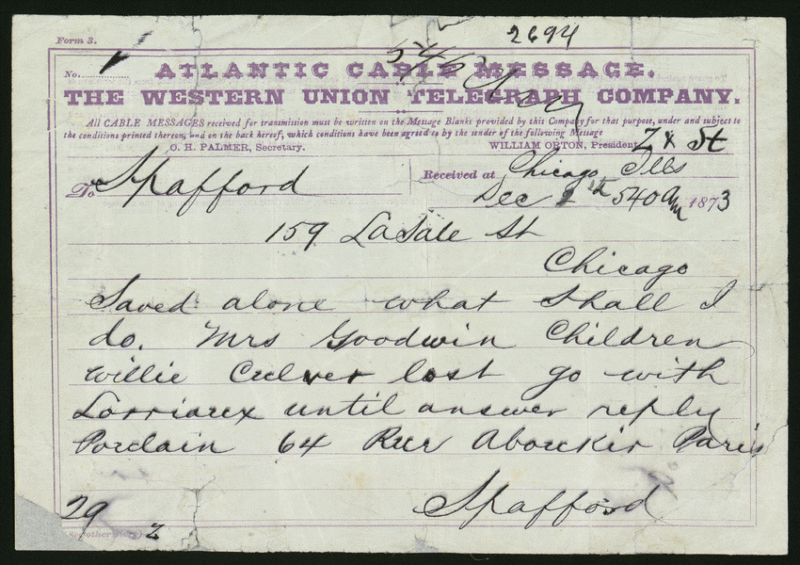 2694
Form 3.
No.
ATLANTIC CABLE MESSAGE.
THE WESTERN UNION TELEGRAPH COMPANY.
All CABLE MESSAGES received for transmission must be written on the Message Blanks provided by this Company for that purpose, under and subject to
the conditions printed thereon, and on the back hereof, which conditions have been agreed to by the sender of the following Message
O. H. PALMER, Secretary. WILLIAM ORTON, President.
To Spafford
Received at Chicago Ills
Dec 540 am 1873
159 LaSale St
Chicago
Saved alone what shall I
do. Mrs Goodwin Children
Willie Culver lost go with
Lorriaux until answer reply
Porclain 64 Rue Aboukir Paris
Spafford
29